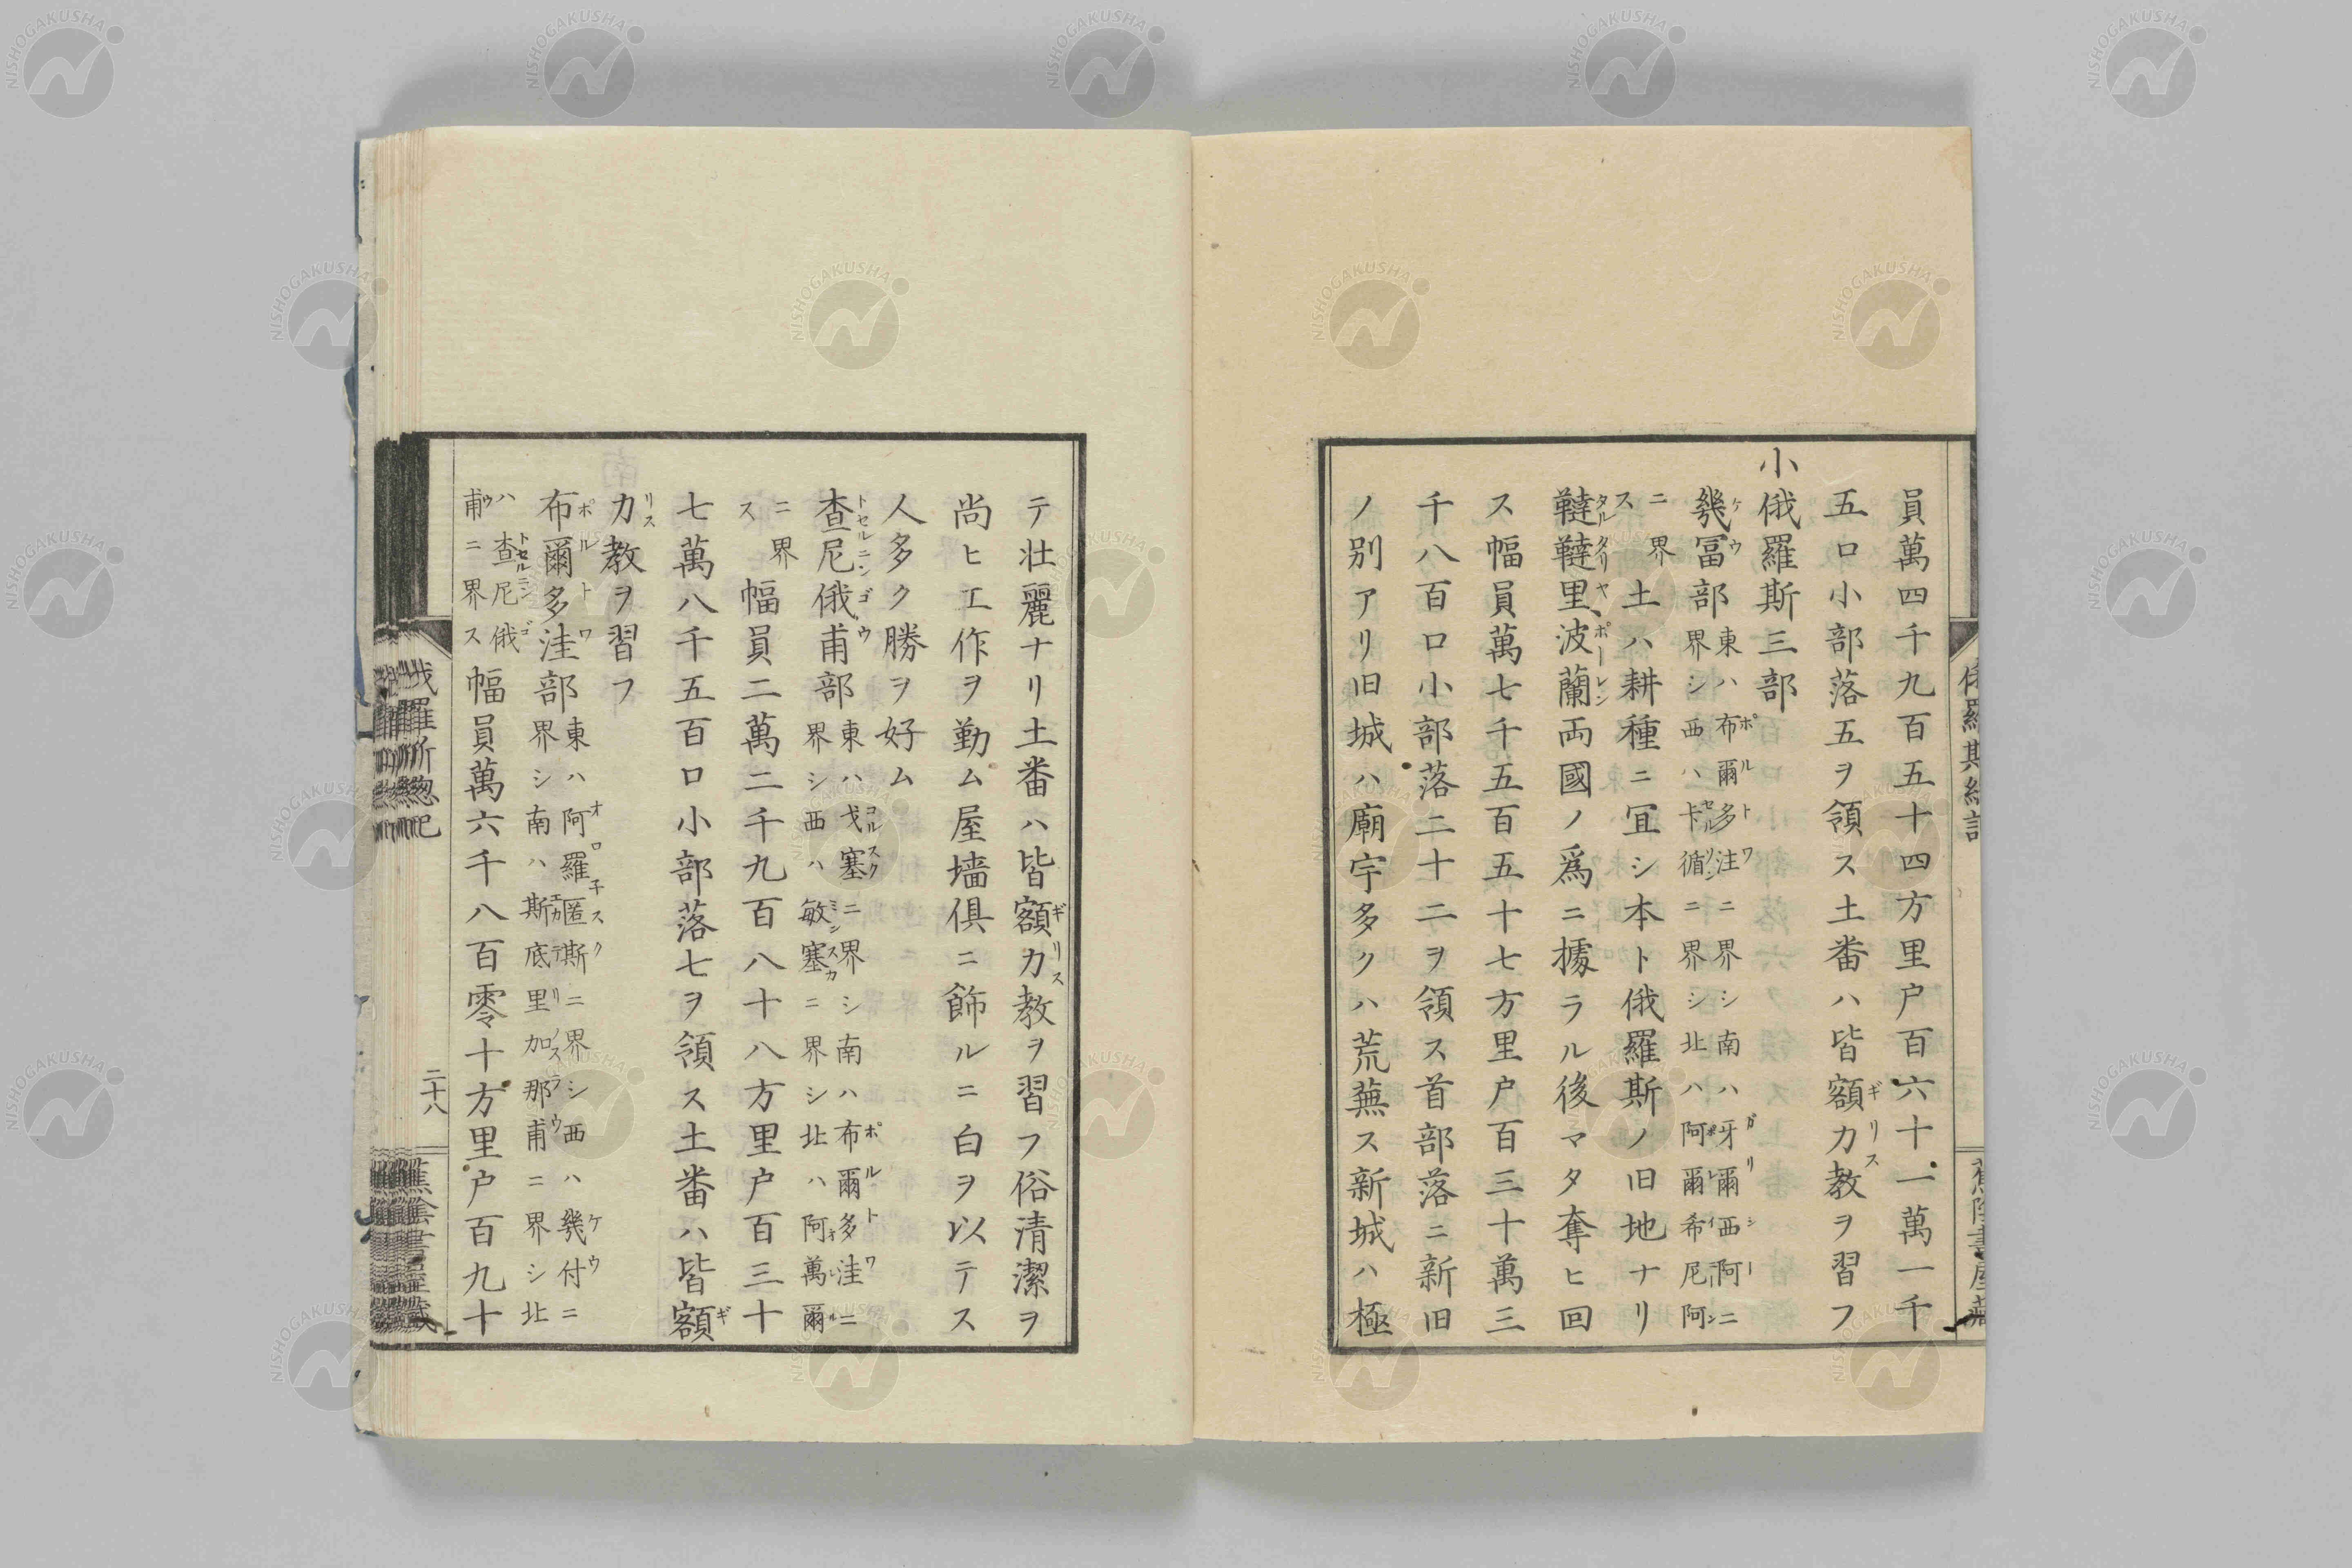 員萬四千九百五十四方里户百六十一萬一千
五口小部落五ヲ領ス土番ハ皆額力教ヲ習フ
小俄羅斯三部
幾冨部東ハ布爾多洼ニ界シ南ハ牙爾西阿ニ
界シ西ハ卡循ニ界シ北ハ阿爾希尼阿
ニ界ス土ハ耕種ニ宜シ本ト俄羅斯ノ旧地ナリ
韃韃里波蘭両國ノ爲ニ據ラル後マタ奪ヒ回
ス幅員萬七千五百五十七方里户百三十萬三
千八百口小部落二十二ヲ領ス首部落ニ新旧
ノ別アリ旧城ハ廟宇多クハ荒蕪ス新城ハ極
俄羅斯総記
蕉陰書屋蔵
テ壮麗ナリ土番ハ皆額力教ヲ習フ俗清潔ヲ
尚ヒ工作ヲ勤ム屋墻倶ニ飾ルニ白ヲ以テス
人多ク勝ヲ好ム
査尼俄甫部東ハ戈塞ニ界シ南ハ布爾多洼ニ
界シ西ハ敏塞ニ界シ北ハ阿萬爾
ニ界ス幅員二萬二千九百八十八方里户百三十
七萬八千五百口小部落七ヲ領ス土番ハ皆額
力教ヲ習フ
布爾多洼部東ハ阿羅匿斯ニ界シ西ハ幾付ニ
界シ南ハ斯底里加那甫ニ界シ北
ハ査尼俄甫ニ界ス幅員萬六千八百零十方里户百九十
俄羅斯總記
二十八
蕉陰書屋蔵
NISHOGAKUSHA